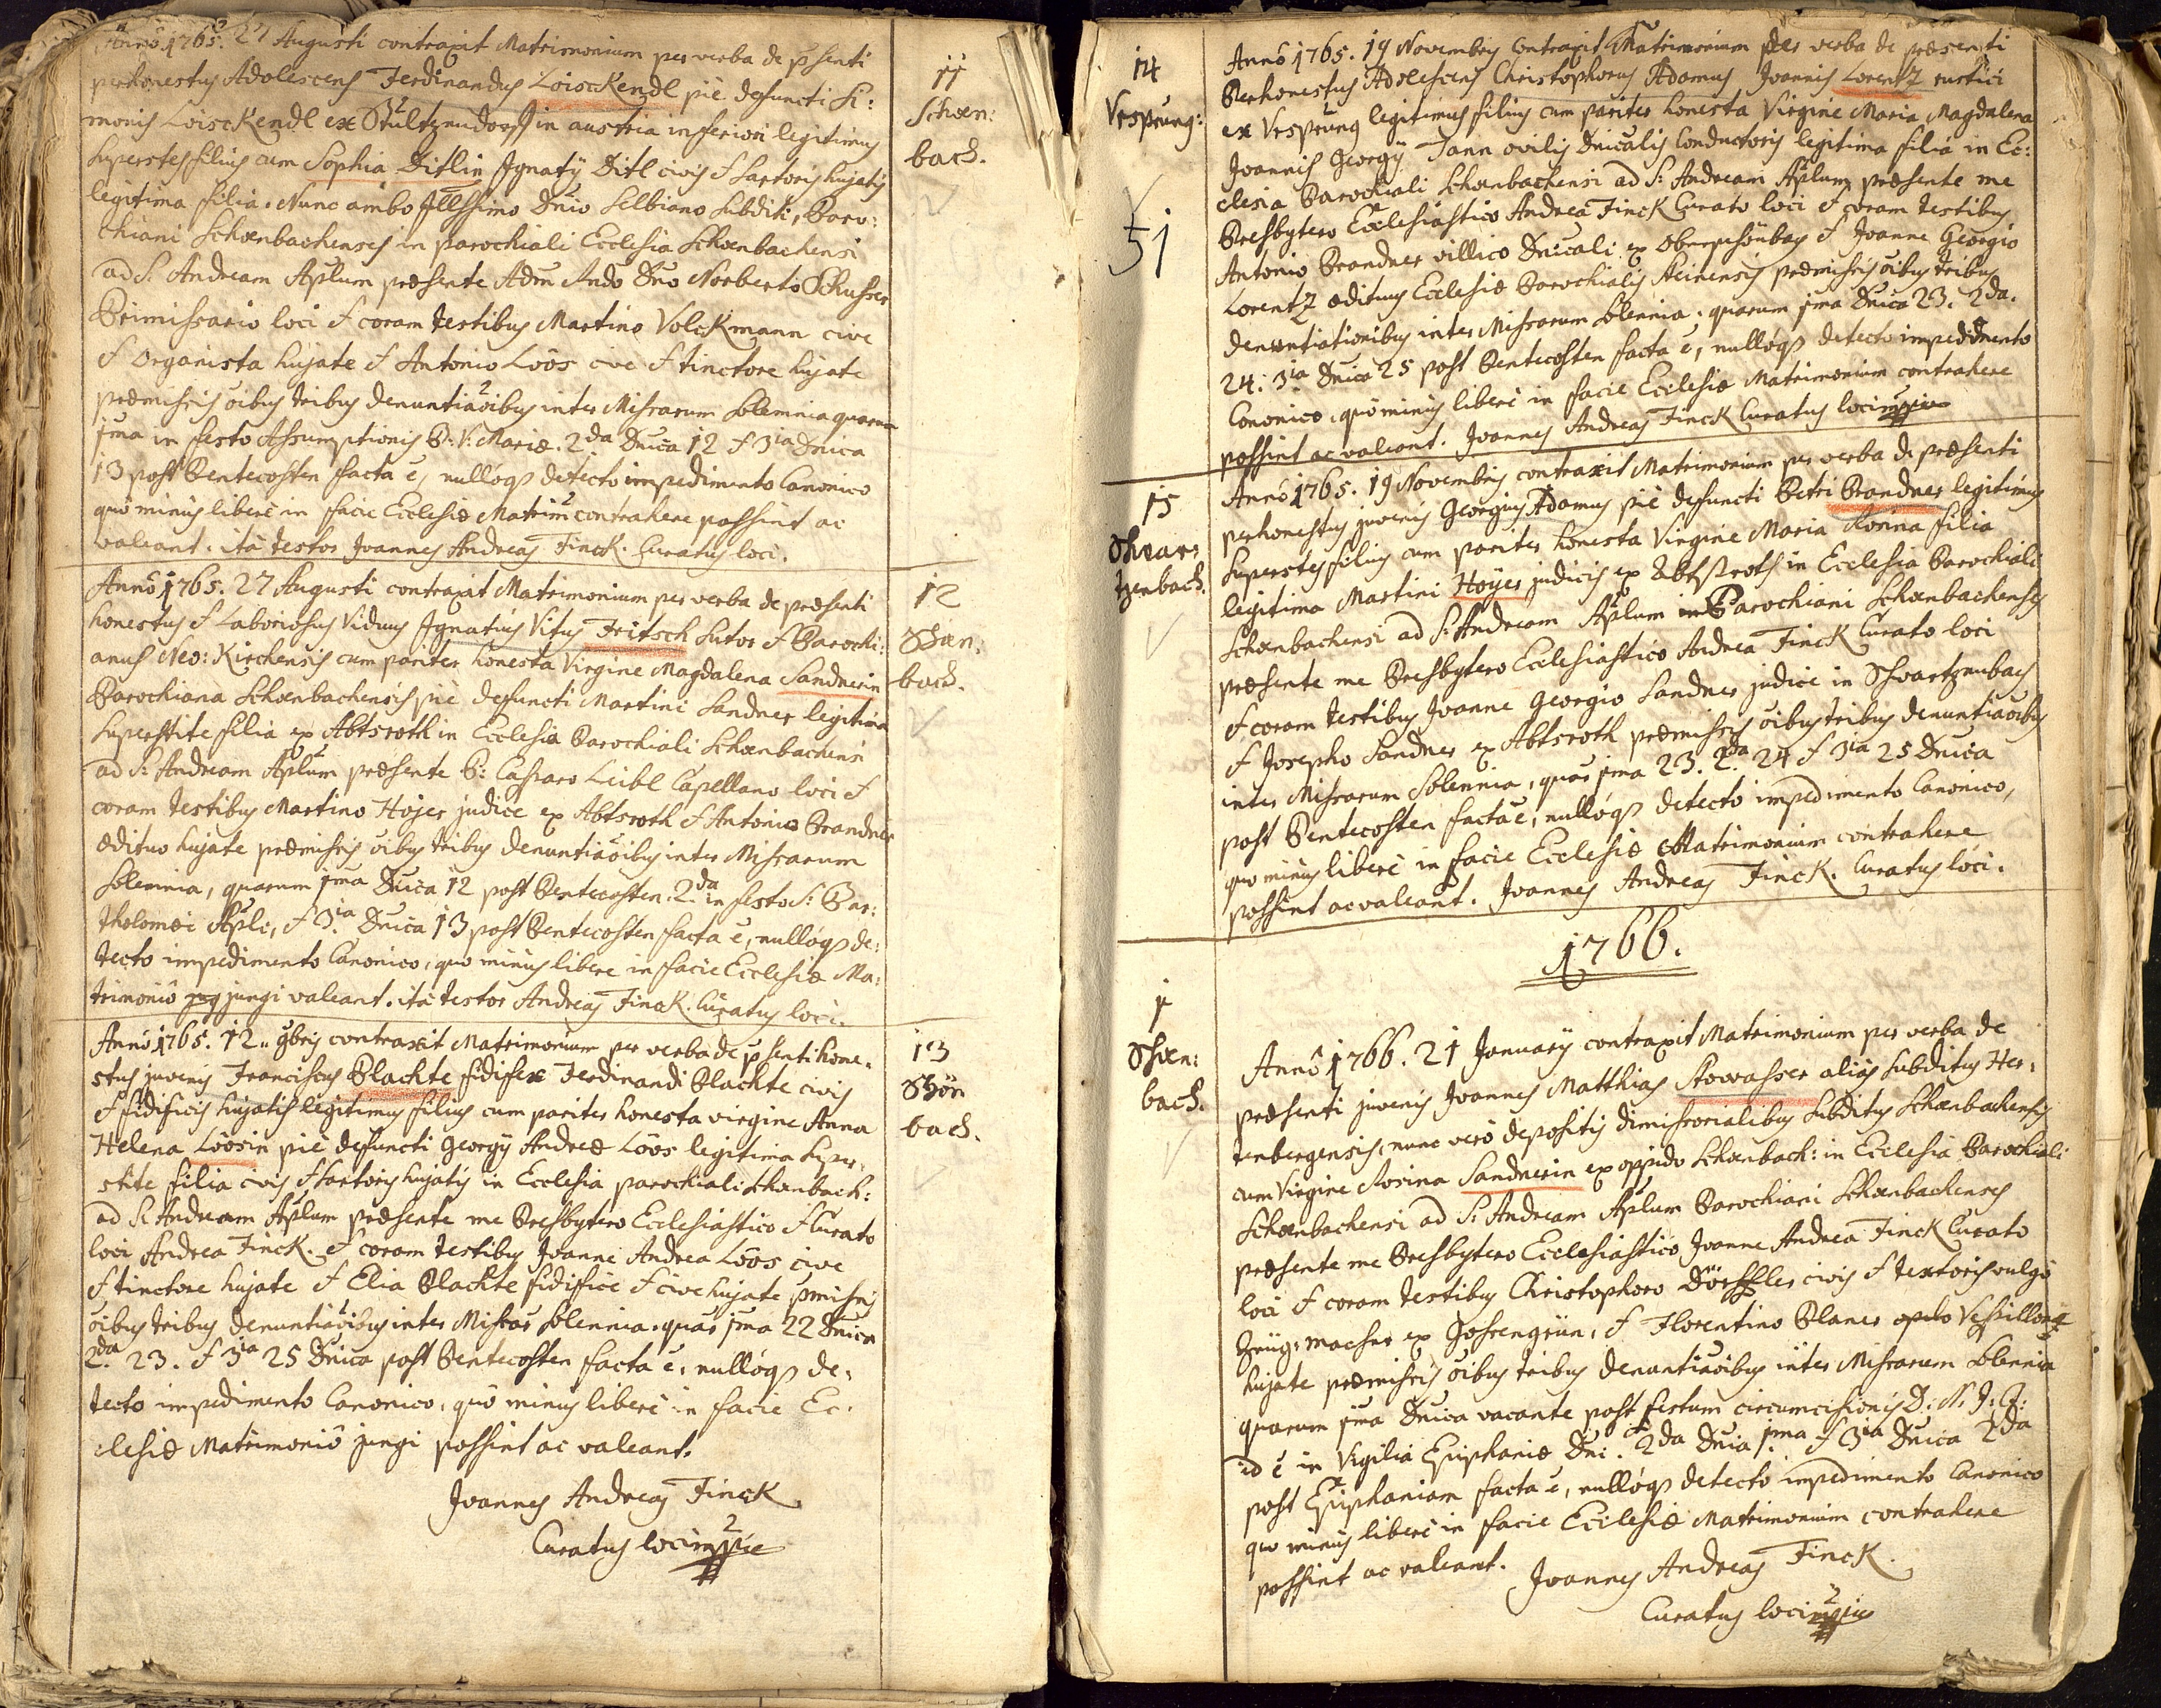 Anno 1765. 27 Augusti contraxit Matrimonium per verba de p̄senti
perhonestus Adolescens Ferdinandus Loisckendl piè defuncti Si:
monis Loisckendl ex Stultzendorf in austria inferiori legitimus
superstes filius cum Sophia Ditlin Ignatÿ Ditl civis & sartoris hujatis
legitima filia. Nunc ambo Illssimo Dno Selbiano subditi, Paro:
chiani Schœnbachenses in parochiali Ecclesia Schœnbachensi
ad S. Andream Aplum præsente Adm Rndo Dno Norberto Schusser
Primissario loci & coram testibus Martino Volckmann cive
& Organista hujate & Antonio Löös cive & tinctore hujate
præmissis oibus tribus denuntiaoibus inter Missarum Solemnia quarum
1ma in festo Assumptionis B: V: Mariæ. 2da Dnica 12 & 3ia Dnica
13 post Pentecosten facta ē, nulloq̃ detecto impedimento Canonico
quô minus liberè in facie Ecclesiæ Matrim contrahere possint ac
valeant. ità testor Joannes Andreas Finck. Curatus loci.
11
Schœn:
bach.
Anno 1765. 27 Augusti contraxit Matrimonium per verba de præsenti
honestus & Laboriosus Viduus Ignatius Vitus Fritsch Sutor & Parochi:
anus Neo: Kirchensis cum pariter honesta Virgine Magdalena Sandnerin
Parochiana Schœnbachensis piè defuncti Martini Sandner legitima
superstite filia ex Abtsroth in Ecclesia Parochiali Schœnbachensi
ad S: Andream Aplum præsente P: Casparo Leibl Capellano loci &
coram testibus Martino Hojer judice ex Abtsroth & Antonio Brandner
ædituo hujate præmissis oibus tribus denuntiaoibus inter Missarum
Solemnia, quarum 1ma Dnica 12 post Pentecosten. 2da in festo S: Bar:
tholomæi Apli, & 3ia Dnica 13 post Pentecosten facta ē, nulloq̃ de:
tecto impedimento Canonico, quo minus libere in facie Ecclesiæ Ma:
trimoniô jung jungi valeant. ità testor Andreas Finck. Curatus loci.
12
Schœn:
bach.
Anno 1765. 12 .. 9bris contraxit Matrimonium per verba de p̄senti hone:
stus juvenis Franciscus Plachte fidifex Ferdinandi Plachte civis
& fidificis hujatis legitimus filius cum pariter honesta virgine Anna
Helena Löösin piè defuncti Georgÿ Andreæ Löös legitima super:
stite filia civis & sartoris hujatis in Ecclesia parochiali Schœnbach:
ad S: Andream Aplum præsente me Presbytero Ecclesiastico & Curato
loci Andrea Finck. & coram testibus Joanne Andrea Löös cive
& tinctore hujate & Elia Plachte fidifice & cive hujate p̄missis
oibus tribus denuntiaoibus inter Missar Solennia. quar 1ma 22 Dnica
2da 23. & 3ia 25 Dnica post Pentecosten facta ē, nulloq̃ de:
tecto impedimento Canonico, quô minus liberè in facie Ec:
clesiæ Matrimoniô jungi possint ac valeant.
Joannes Andreas Finck
Curatus loci mpria
13
Schön
bach.
14
Vrsprung:
51
Anno 1765. 19 Novembris Contraxit Matrimonium per verba de præsenti
Perhonestus Adolescens Christophorus Adamus Joannis Lorentz rustici
ex Vrsprung legitimus filius cum pariter honesta Virgine Maria Magdalena
Joannis Georgÿ Jann ovilis Dnicalis Conductoris legitima filia in Ec:
clesia Parochiali Schœnbachensi ad S: Andream Aplum præsente me
Presbytero Ecclesiastico Andrea Finck Curato loci & coram testibus
Antonio Brandner villico Dnicali ex Oberschönbach & Joanne Georgio
Lorentz ædituus Ecclesiæ Parochialis Steinensis præmissis oibus tribus
denuntiationibus inter Missarum Solennia. quarum 1ma Dnica 23. 2da.
24. 3ia Dnica 25 post Pentecosten facta ē, nulloq̃ detecto impedimento
Canonico, quô minus liberè in facie Ecclesiæ Matrimonium contrahere
possint ac valeant. Joannes Andreas Finck Curatus loci mpria
15
Schwar:
tzenbach.
Anno 1765. 19 Novembris contraxit Matrimonium per verba de præsenti
perhonestus juvenis Georgius Adamus piè defuncti Petri Brandner legitimus
superstes filius cum pariter honesta Virgine Maria Rosina filia
legitima Martini Hoÿer judicis ex Abtßroth in Ecclesia Parochiali
Schœnbachensi ad S: Andream Aplum Parochiani Schœnbachenses
præsente me Presbytero Ecclesiastico Andrea Finck Curato loci
& coram testibus Joanne Georgio Sandner judice in Schwartzenbach
& Josepho Sandner ex Abtsroth præmissis oibus tribus denuntiaoibus
inter Missarum Solennia, quar 1ma 23. 2da 24 & 3ia 25 Dnica
post Pentecosten facta ē, nulloq̃ detecto impedimento Canonico,
quo minus liberè in facie Ecclesiæ Matrimonium contrahere
possint ac valeant. Joannes Andreas Finck. Curatus loci.
1766.
1
Schœn:
bach.
Anno 1766. 21 Januarÿ contraxit Matrimonium per verba de
præsenti juvenis Joannes Matthias Stowasser aliàs subditus Her:
tenbergensis, nunc verò depositis dimissorialibus subditus Schœnbachensis
cum Virgine Rosina Sandnerin ex oppido Schœnbach: in Ecclesia Parochiali
Schœnbachensi ad S: Andream Aplum Parochiani Schœnbachenses
præsente me Presbytero Ecclesiastico Joanne Andrea Finck Curato
loci & coram testibus Christophoro Dörffler civis & textoris vulgò
Zeüg: macher ex Gossengrün, & Florentino Planer
hujate præmissis oibus tribus denuntiaoibus inter Missarum Solennia
quarum 1ma Dnica vacante post festum circumcisionis D: N: J: C:
id ē in Vigilia Epiphaniæ Dni. 2da Dnia 1ma & 3ia Dnica 2da
post Epiphaniam facta ē, nulloq̃ detecto impedimento Canonico
quo minus liberè in facie Ecclesiæ Matrimonium contrahere
possint ac valeant. Joannes Andreas Finck.
Curatus loci mpria